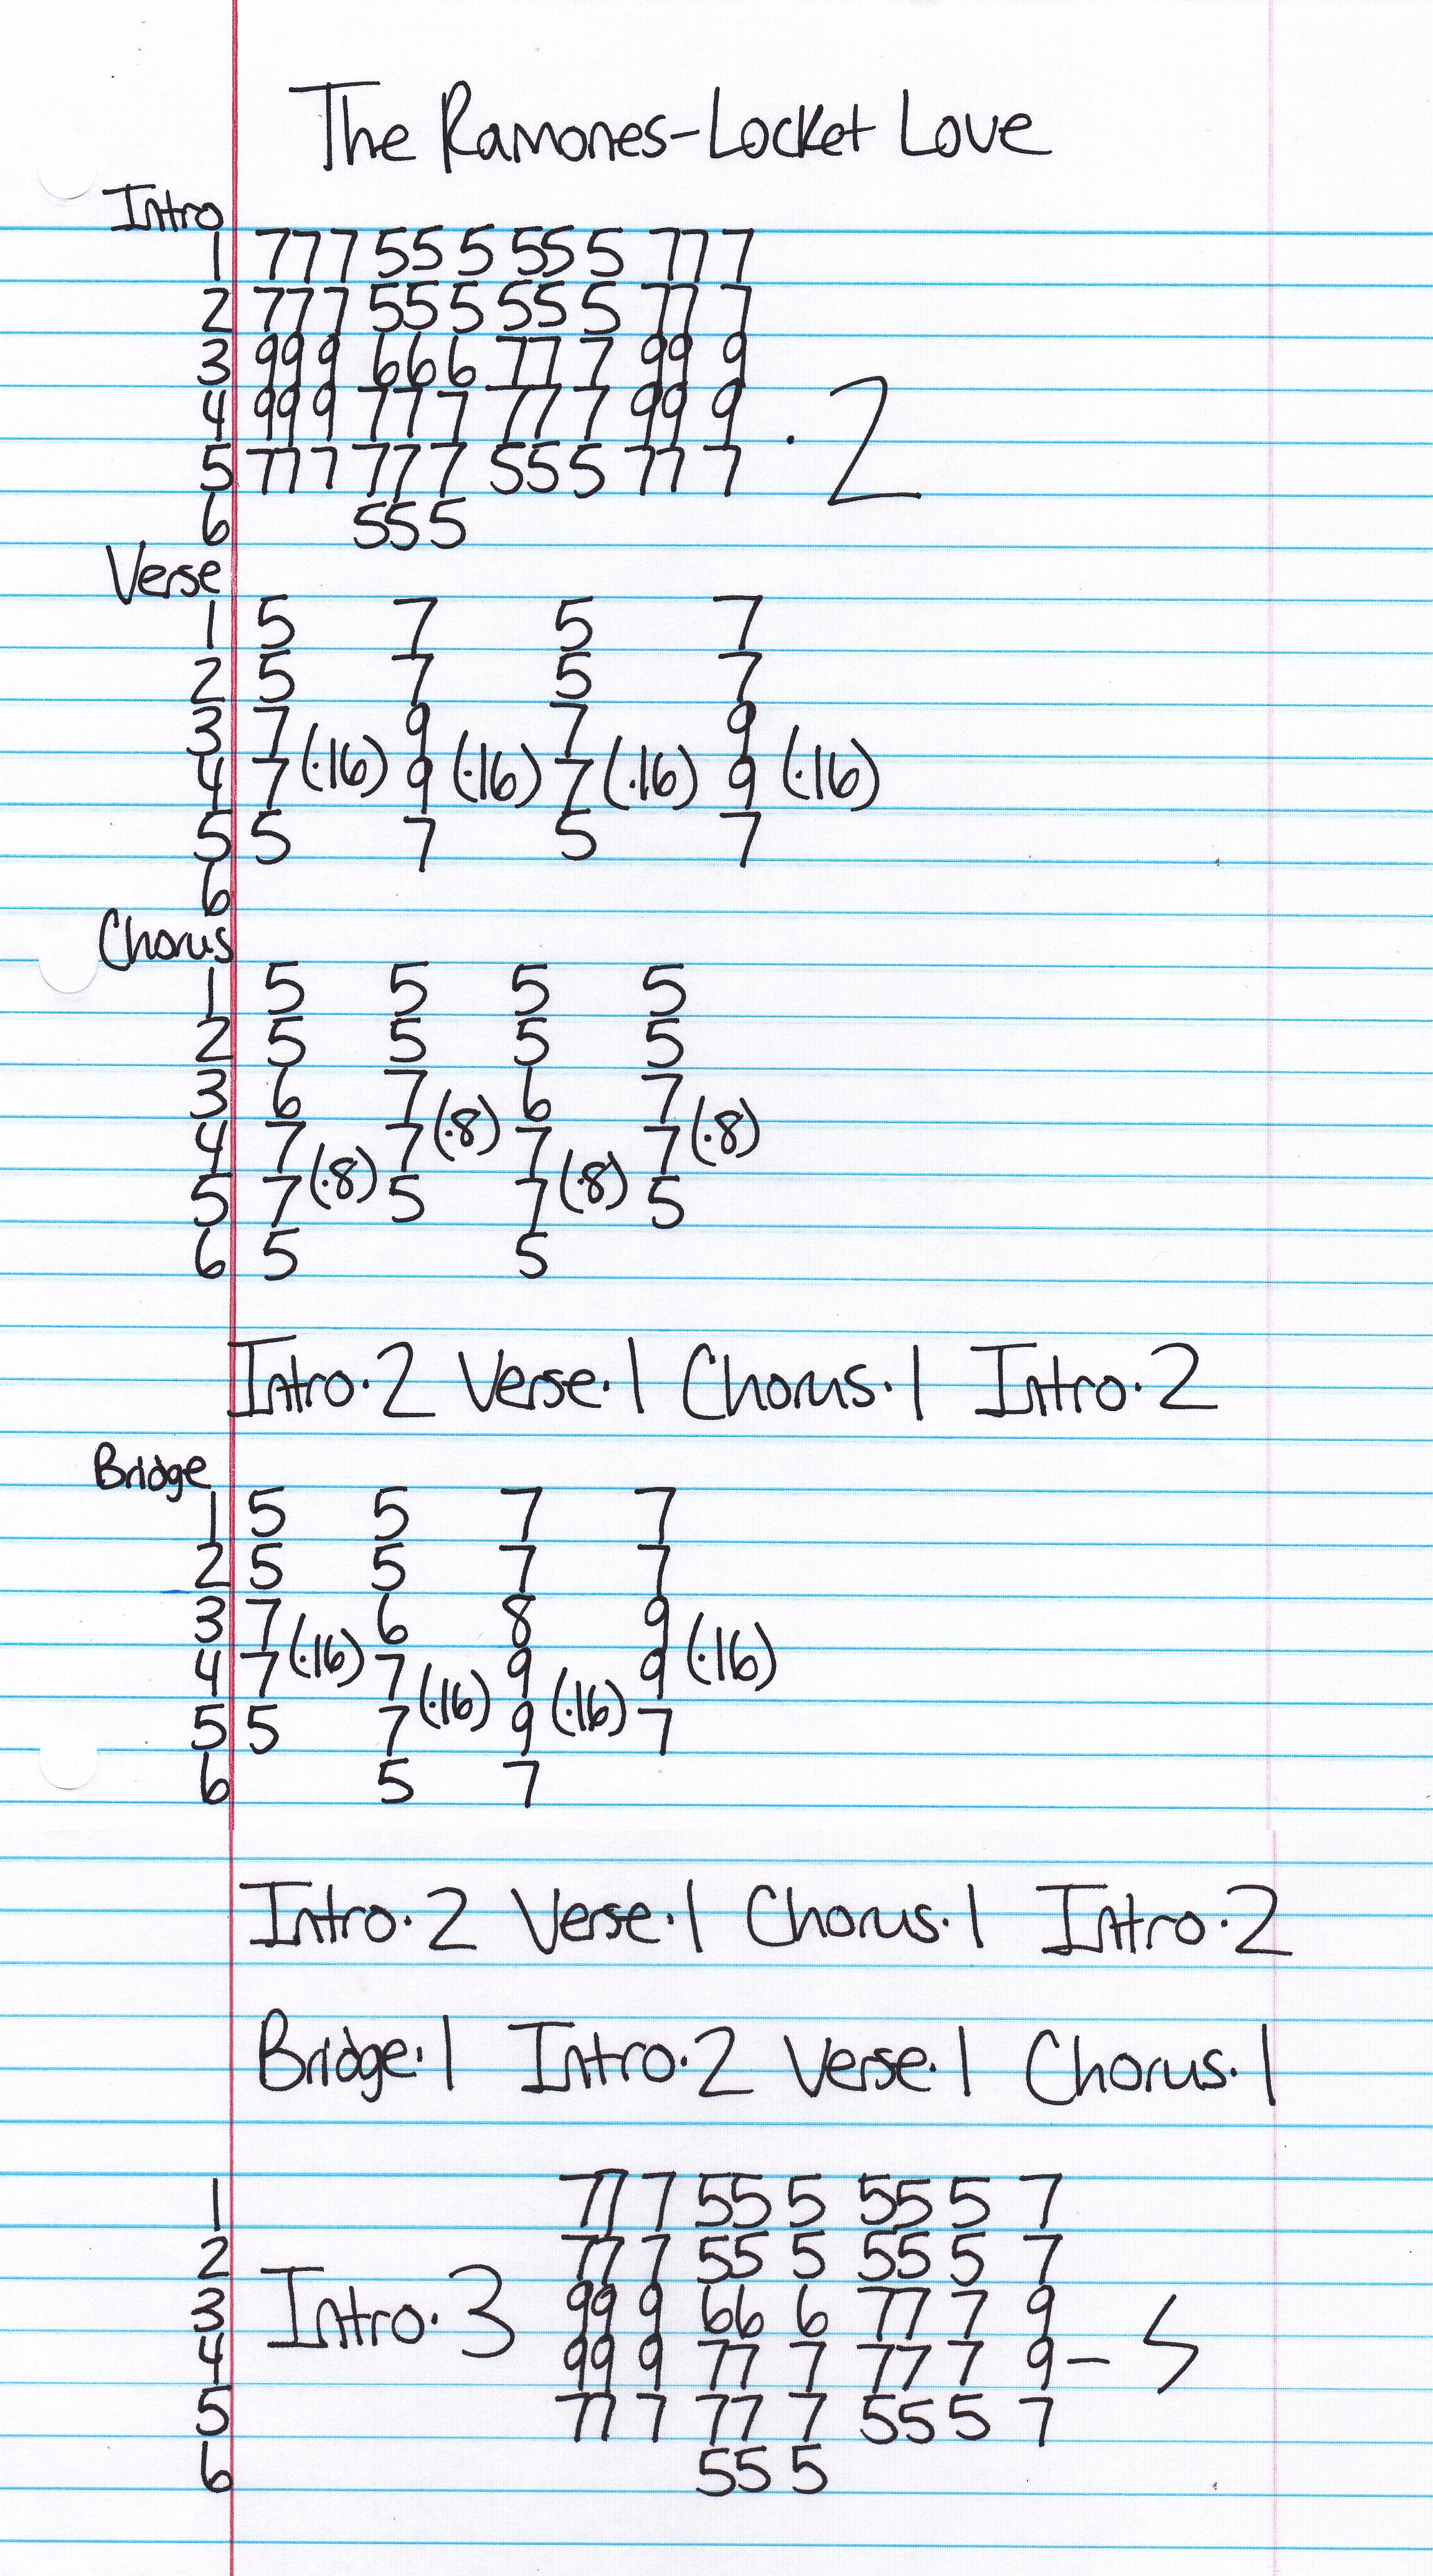 The Ramones-Locket Love
Intro
1 777 555 555 777
2 777 555 555 777
3 999 666 777 999
4 999 777 777 999 · 2
5 777 777 555 777
6 555
Verse
1 5 7 5 7
2 5 7 5 7
3 7 9 7 9
4 7 (·16) 9 (·16) 7 (·16) 9 (·16)
5 5 7 5 7
6
Chorus
1 5 5 5 5
2 5 5 5 5
3 6 7 6 7
4 7 7 (·8) 7 7 (·8)
5 7 (·8) 5 7 (·8) 5
6 5 5
Intro·2 Verse·1 Chorus·1 Intro·2
Bridge
1 5 5 7 7
2 5 5 7 7
3 7 6 8 9
4 7 (·16) 7 9 9 (·16)
5 5 7 (·16) 9 (·16) 7
6 5 7
Intro·2 Verse·1 Chorus·1 Intro·2
Bridge·1 Intro·2 Verse·1 Chorus·1
1 77 7 55 5 55 5 7
2 77 7 55 5 55 5 7
3 Intro·3 99 9 66 6 77 7 9
4 99 9 77 7 77 7 9 –
5 77 7 77 7 55 5 7
6 55 5